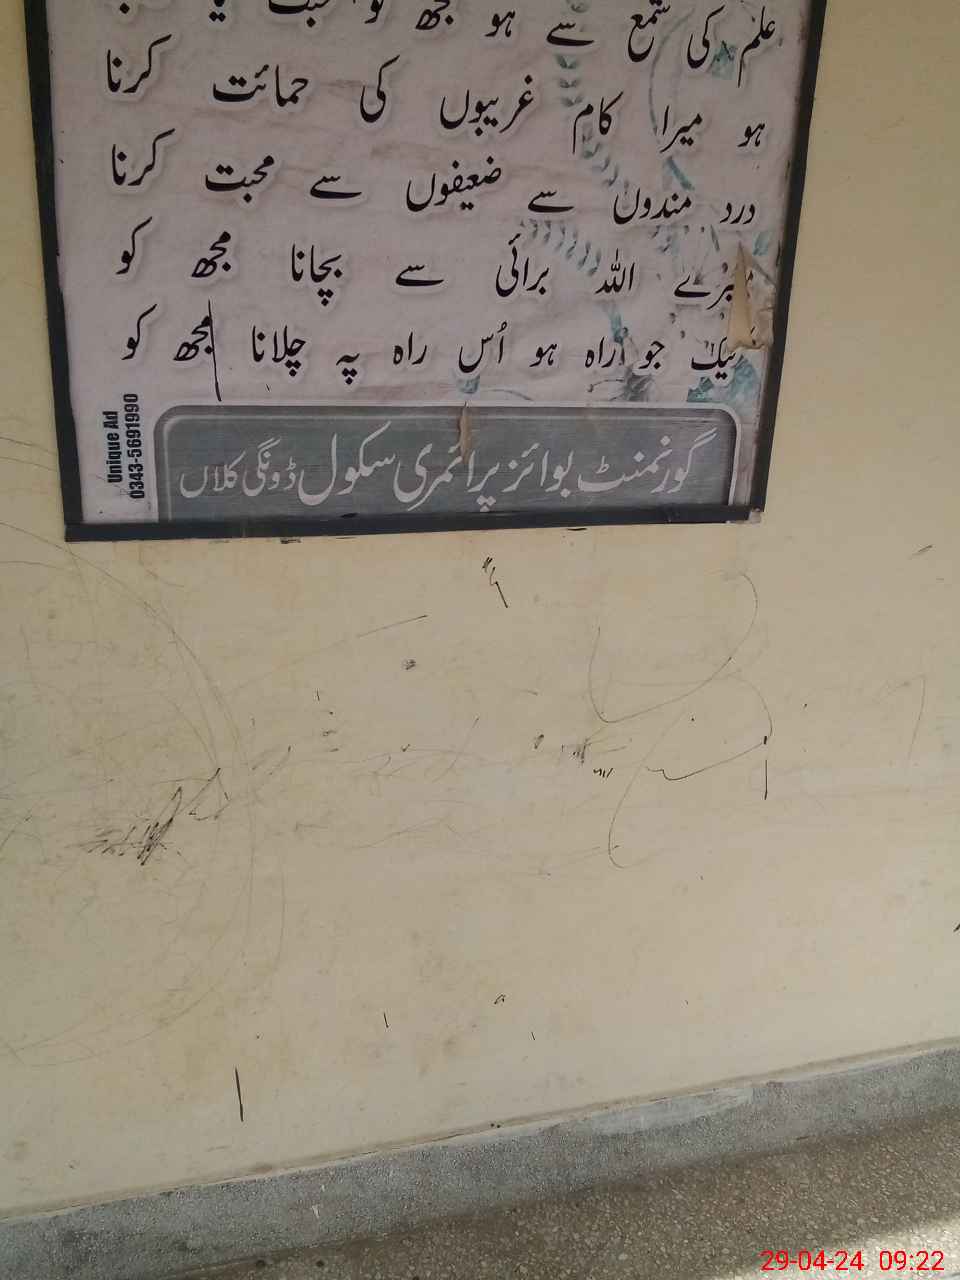 علم کی شمع سے ہو مجھ کو
ہو میرا کام غریبوں کی حمائت کرنا
درد مندوں سے ضعیفوں سے محبت کرنا
میرے اللہ برائی سے بچانا مجھ کو
نیک جو راہ ہو اُس راہ پہ چلانا مجھ کو
Unique Ad
0343-5691990
گورنمنٹ بوائز پرائمری سکول ڈونگی کلاں
29-04-24 09:22